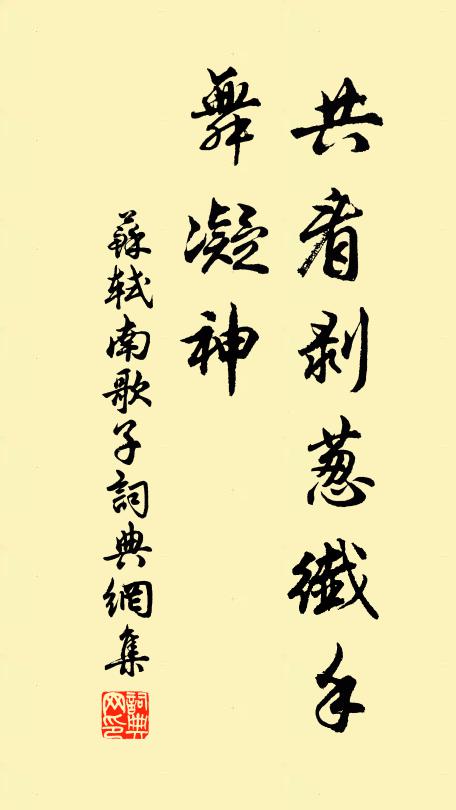 共看剥葱纖手
舞凝神
蘇軾南歌子詞典網集
詞典網印